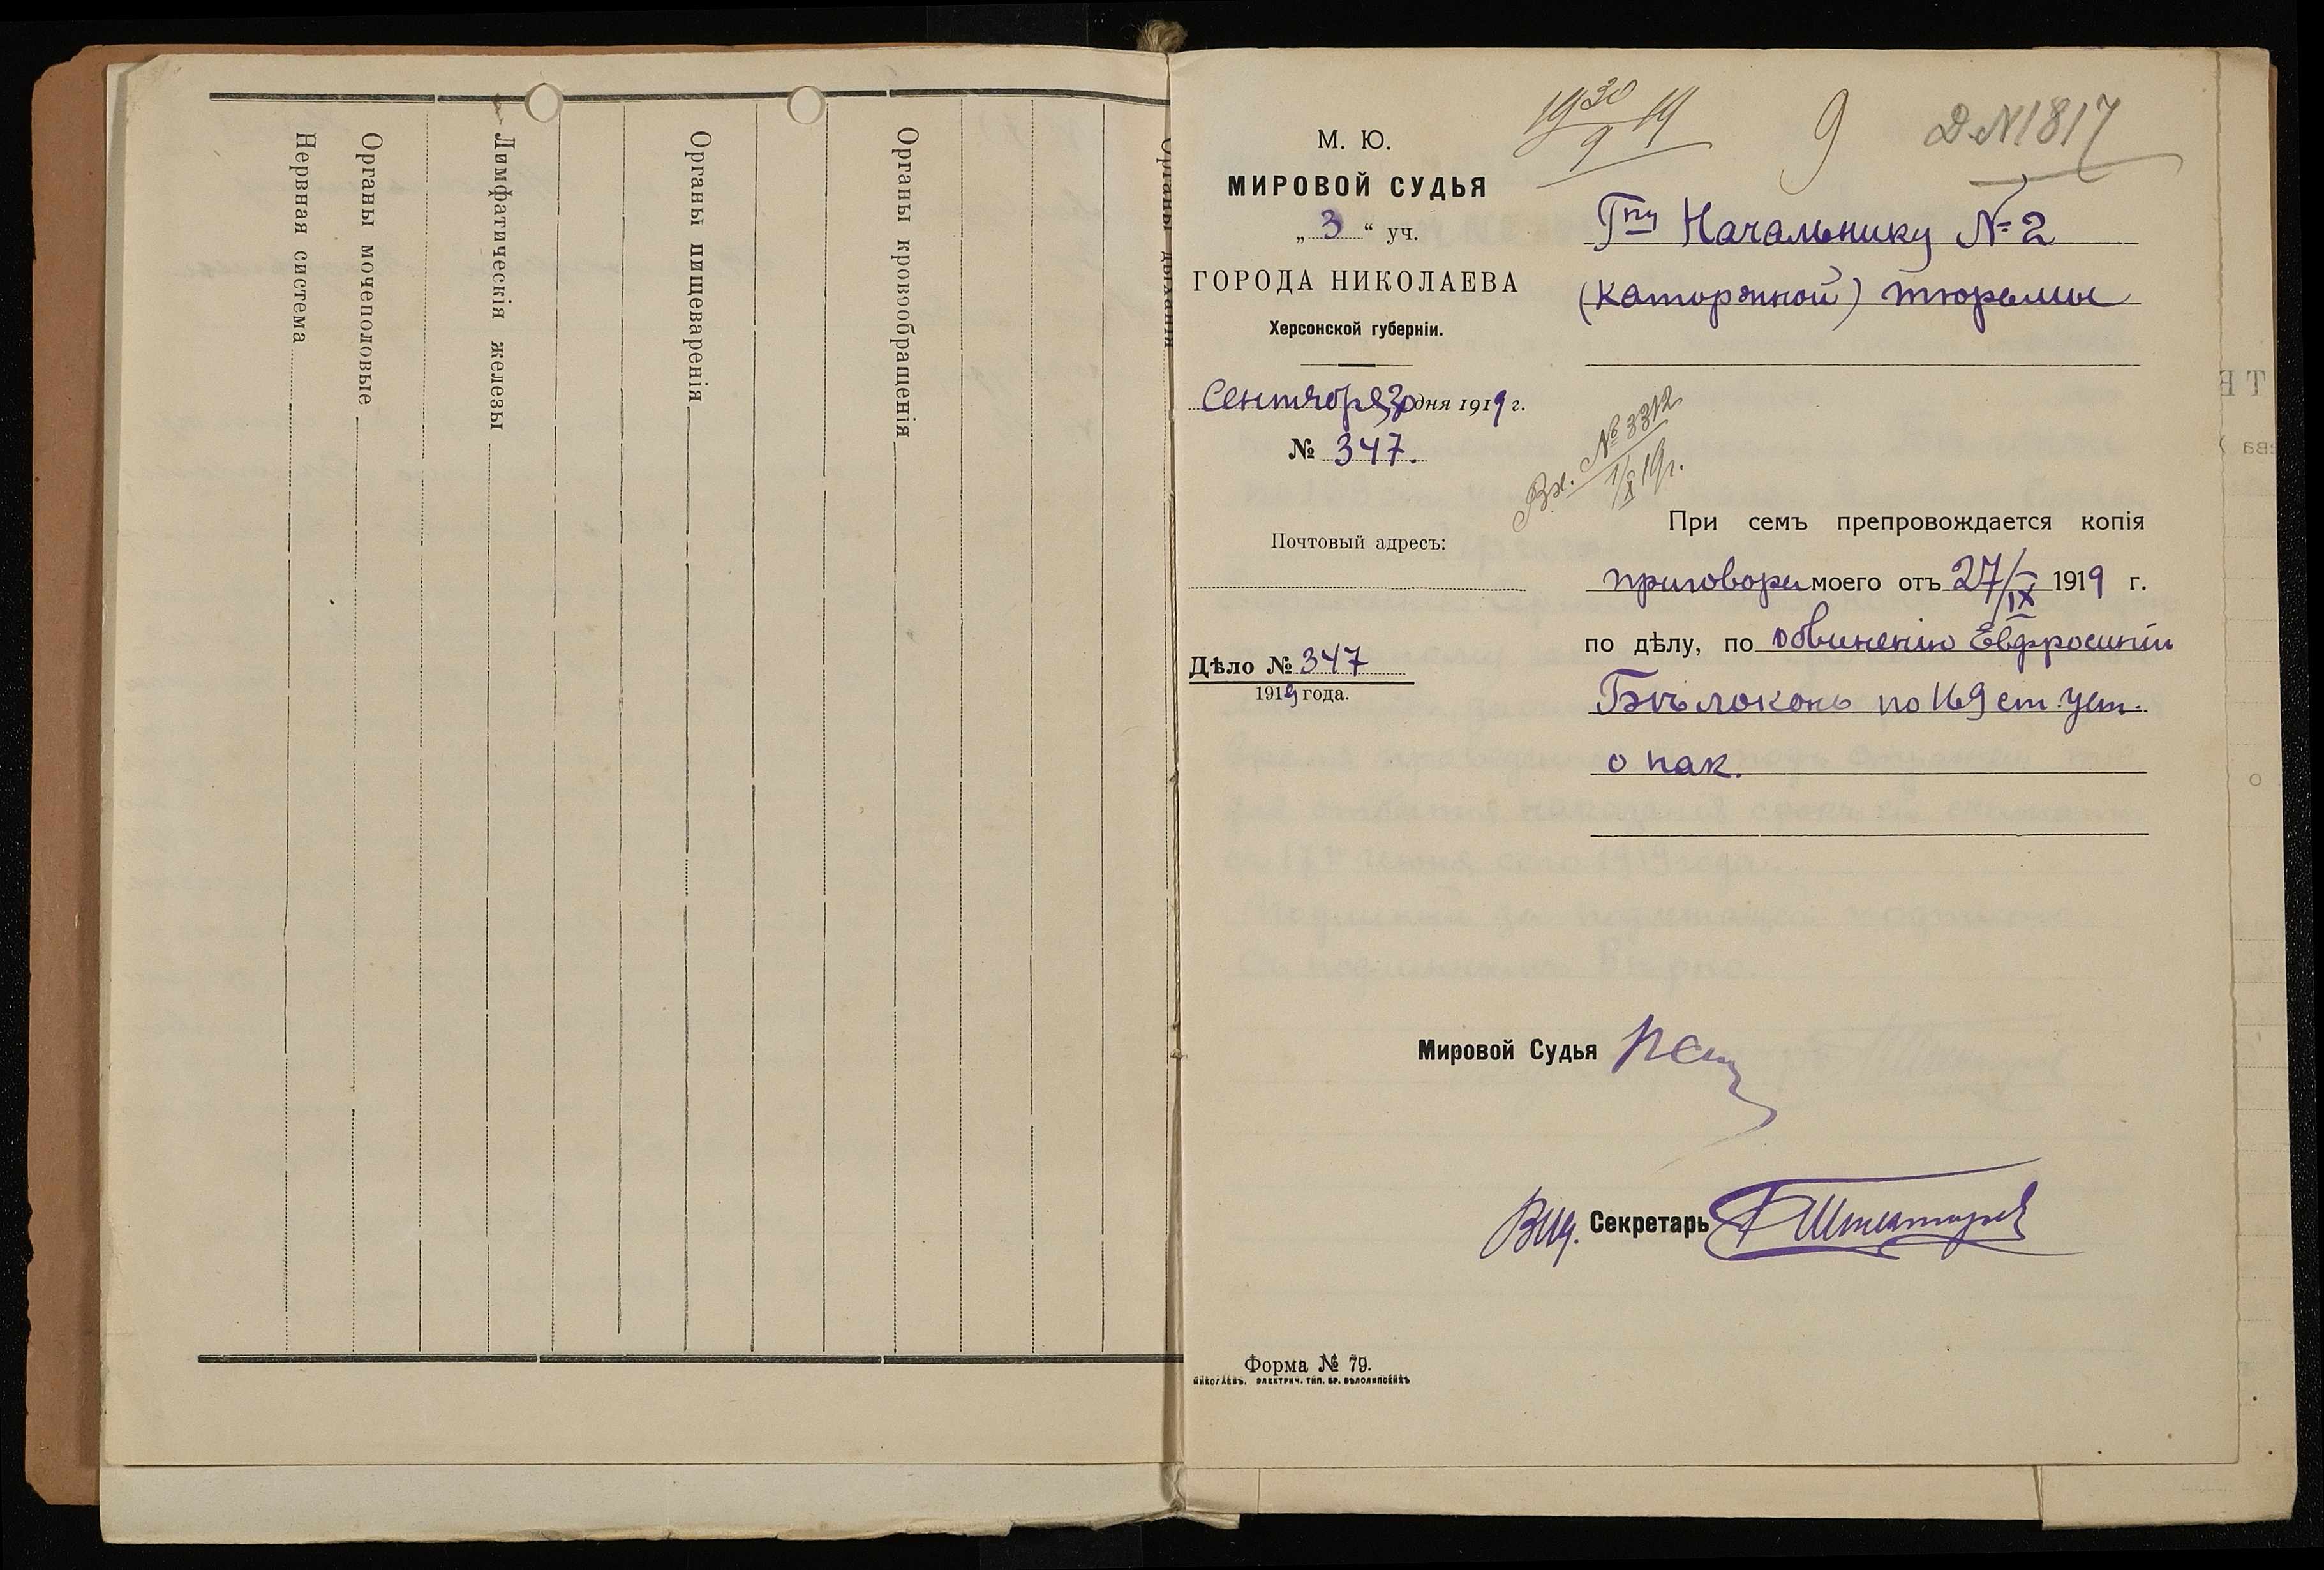 Нервная система
Органы мочеполовые
Лимфатическія железы
Органы пищеваренія
Органы кровообращенія
Органы дыханія
19 30/9 19
9
Д. N 1817
М. Ю.
МИРОВОЙ СУДЬЯ
„ 3 “ уч.
ГОРОДА НИКОЛАЕВА
Херсонской губерніи.
Сентября 30 дня 1919 г.
№ 347.
Почтовый адресъ:
Дѣло № 347
1919 года.
Гну Начальнику № 2
(каторжной) тюрьмы
Вх. № 3312
1/X 19г.
При семъ препровождается копія
приговора моего отъ 27/IX 1919 г.
по дѣлу, по обвинению Евфросиніи
Бѣлоконь по 169 ст. уст.
о нак.
Мировой Судья
Вид. Секретарь
Форма № 79.
НИКОЛАЕВЪ. ЭЛЕКТРИЧ. ТИП. БР. БѢЛОЛИПСКИХЪ